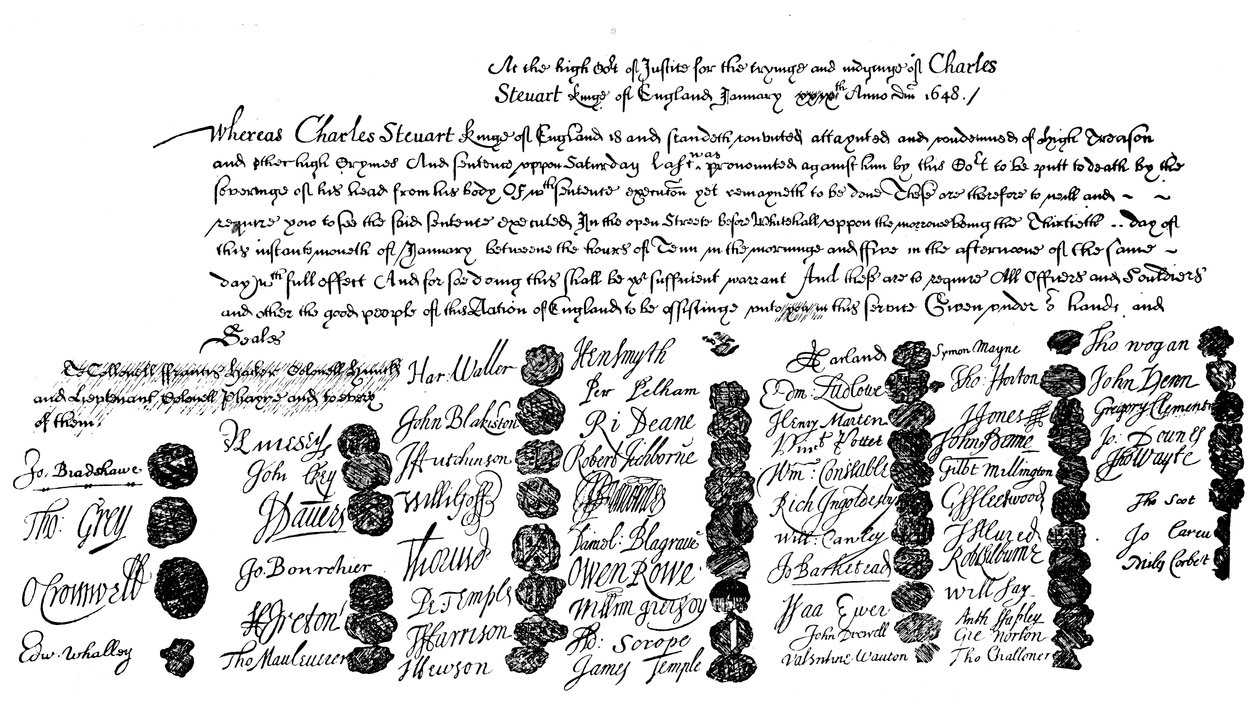 At the high Cort of Justice for the tryinge and iudginge of Charles
Steuart Kinge of England January xxixth Anno Dni 1648./
Whereas Charles Steuart Kinge of England is and standeth convicted attaynted and condemned of High Treason
and other high Crymes And sentence uppon Saturday last was pronounced against him by this Cort to be putt to death by the
severinge of his head from his body Of wch sentence execucon yet remayneth to be done These are therefore to will and
require you to see the said sentence executed In the open Streete before Whitehall uppon the morrowe being the Thirtieth day of
this instante moneth of January betweene the hours of Tenn in the morninge and ffive in the afternoone of the same
day wth full effect And for soe doing this shall be yor sufficient warrant And these are to require All Officers and Souldiers
and other the good people of this Nation of England to be assistinge unto you in this service Given under or hands and
Seales
To Collonell ffrancis Hacker Colonell Huncks
and Lieutenant Colonell Phayre and to every
of them
Jo. Bradshawe
Tho: Grey
O Cromwell
Edw. Whalley
M Livesey
John Okey
J Dauers
Jo. Bourchier
H Ireton
Tho Mauleuerer
Har. Waller
John Blakiston
J Hutchinson
Willi Goff
Tho Pride
Pe Temple
T Harrison
J Hewson
Hen Smyth
Per Pelham
Ri Deane
Robert Tichborne
Daniel Blagrave
Owen Rowe
Willm Purefoy
Ad: Scrope
James Temple
A Garland
Edm. Ludlowe
Henry Marten
Vinct Potter
Wm: Constable
Rich Ingoldesby
Will: Cawley
Jo Barkstead
Isaa Ewer
John Dixwell
Valentine Wauton
Symon Mayne
Tho Horton
J Jones
John Penne
Gilbt Millington
G ffleetwood
J Alured
Rob Lilburne
Will Say
Anth Stapley
Gre Norton
Tho Challoner
Tho Wogan
John Venn
Gregory Clement
Jo: Downes
Tho Wayte
Tho Scot
Jo Carew
Miles Corbet